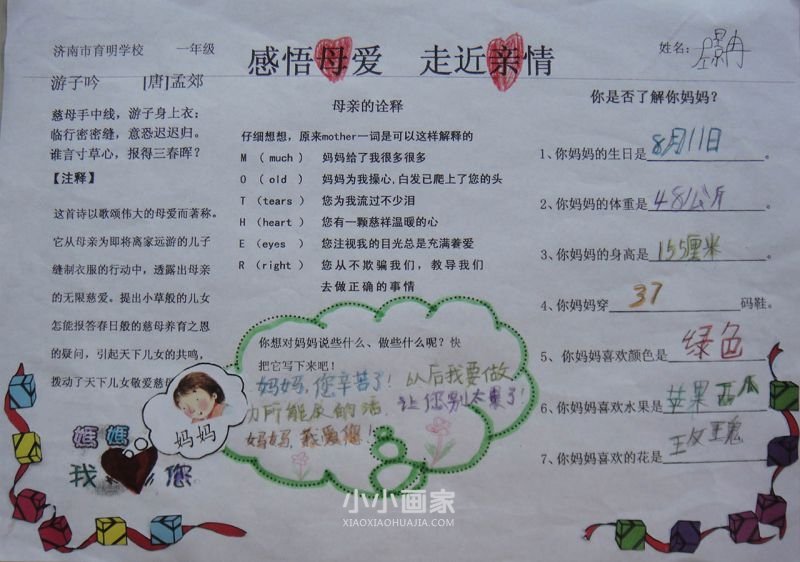 济南市育明学校 一年级
感悟母爱 走近亲情
姓名：景冉
游子吟 [唐]孟郊
慈母手中线，游子身上衣；
临行密密缝，意恐迟迟归。
谁言寸草心，报得三春晖？
【注释】
这首诗以歌颂伟大的母爱而著称。
它从母亲为即将离家远游的儿子
缝制衣服的行动中，透露出母亲
的无限慈爱。提出小草般的儿女
怎能报答春日般的慈母养育之恩
的疑问，引起天下儿女的共鸣，
拨动了天下儿女敬爱慈
妈妈
媽媽
我 您
母亲的诠释
仔细想想，原来mother一词是可以这样解释的
M （ much ） 妈妈给了我很多很多
O （ old ） 妈妈为我操心,白发已爬上了您的头
T （tears） 您为我流过不少泪
H （heart） 您有一颗慈祥温暖的心
E （eyes ） 您注视我的目光总是充满着爱
R （right） 您从不欺骗我们，教导我们
去做正确的事情
你想对妈妈说些什么、做些什么呢？快
把它写下来吧！
妈妈,您辛苦了！以后我要做
力所能及的活,让您别太累了！
妈妈,我爱您！
你是否了解你妈妈？
1、你妈妈的生日是8月11日。
2、你妈妈的体重是48公斤。
3、你妈妈的身高是155厘米。
4、你妈妈穿37码鞋。
5、你妈妈喜欢颜色是绿色
6、你妈妈喜欢水果是苹果西瓜
7、你妈妈喜欢的花是玫瑰
小小画家
XIAOXIAOHUAJIA.COM